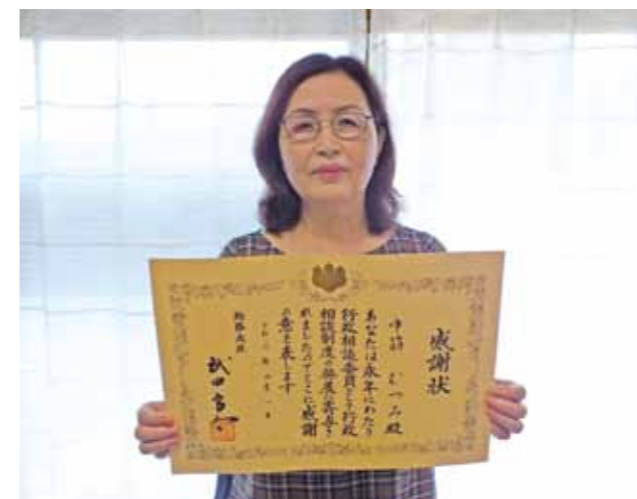 感謝状
むつみ殿
あなたは永年にわたり
行政相談委員として行政
相談制度の発展に寄与さ
れましたのでここに感謝
の意を表します
総務大臣
武田良太